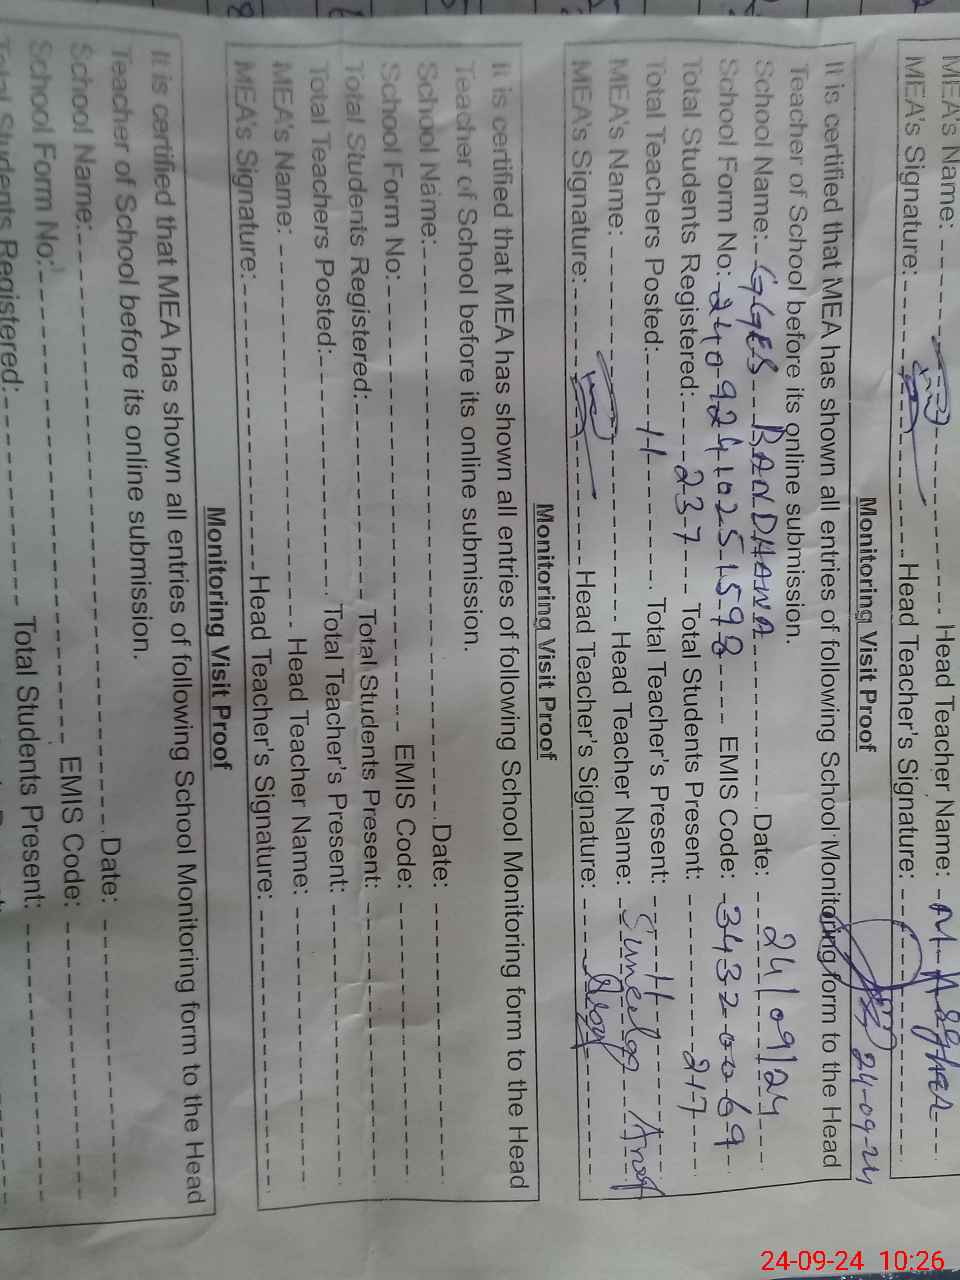 MEA's Name: Head Teacher Name: M. Asghar
MEA's Signature: Head Teacher's Signature:
24-09-24
Monitoring Visit Proof
It is certified that MEA has shown all entries of following School Monitoring form to the Head
Teacher of School before its online submission.
School Name: GGES BANDHANA Date: 24/09/24
School Form No: EMIS Code: 34320069
Total Students Registered: 237 Total Students Present: 217
Total Teachers Posted: 11 Total Teacher's Present: 11
MEA's Name: Head Teacher Name:
MEA's Signature: Head Teacher's Signature:
Monitoring Visit Proof
It is certified that MEA has shown all entries of following School Monitoring form to the Head
Teacher of School before its online submission.
School Name: Date:
School Form No: EMIS Code:
Total Students Registered: Total Students Present:
Total Teachers Posted: Total Teacher's Present:
MEA's Name: Head Teacher Name:
MEA's Signature: Head Teacher's Signature:
Monitoring Visit Proof
It is certified that MEA has shown all entries of following School Monitoring form to the Head
Teacher of School before its online submission.
School Name: Date:
School Form No: EMIS Code:
Total Students Registered: Total Students Present:
24-09-24 10:26